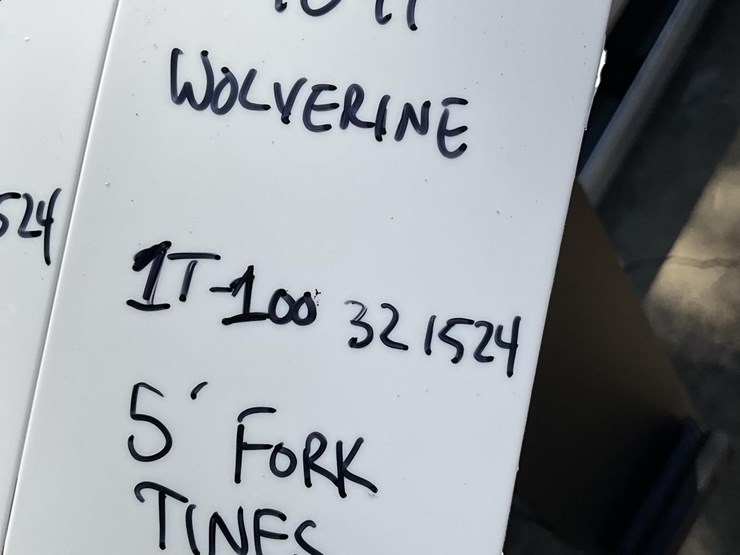 WOLVERINE
524
1T-100 321524
5' FORK
TINES